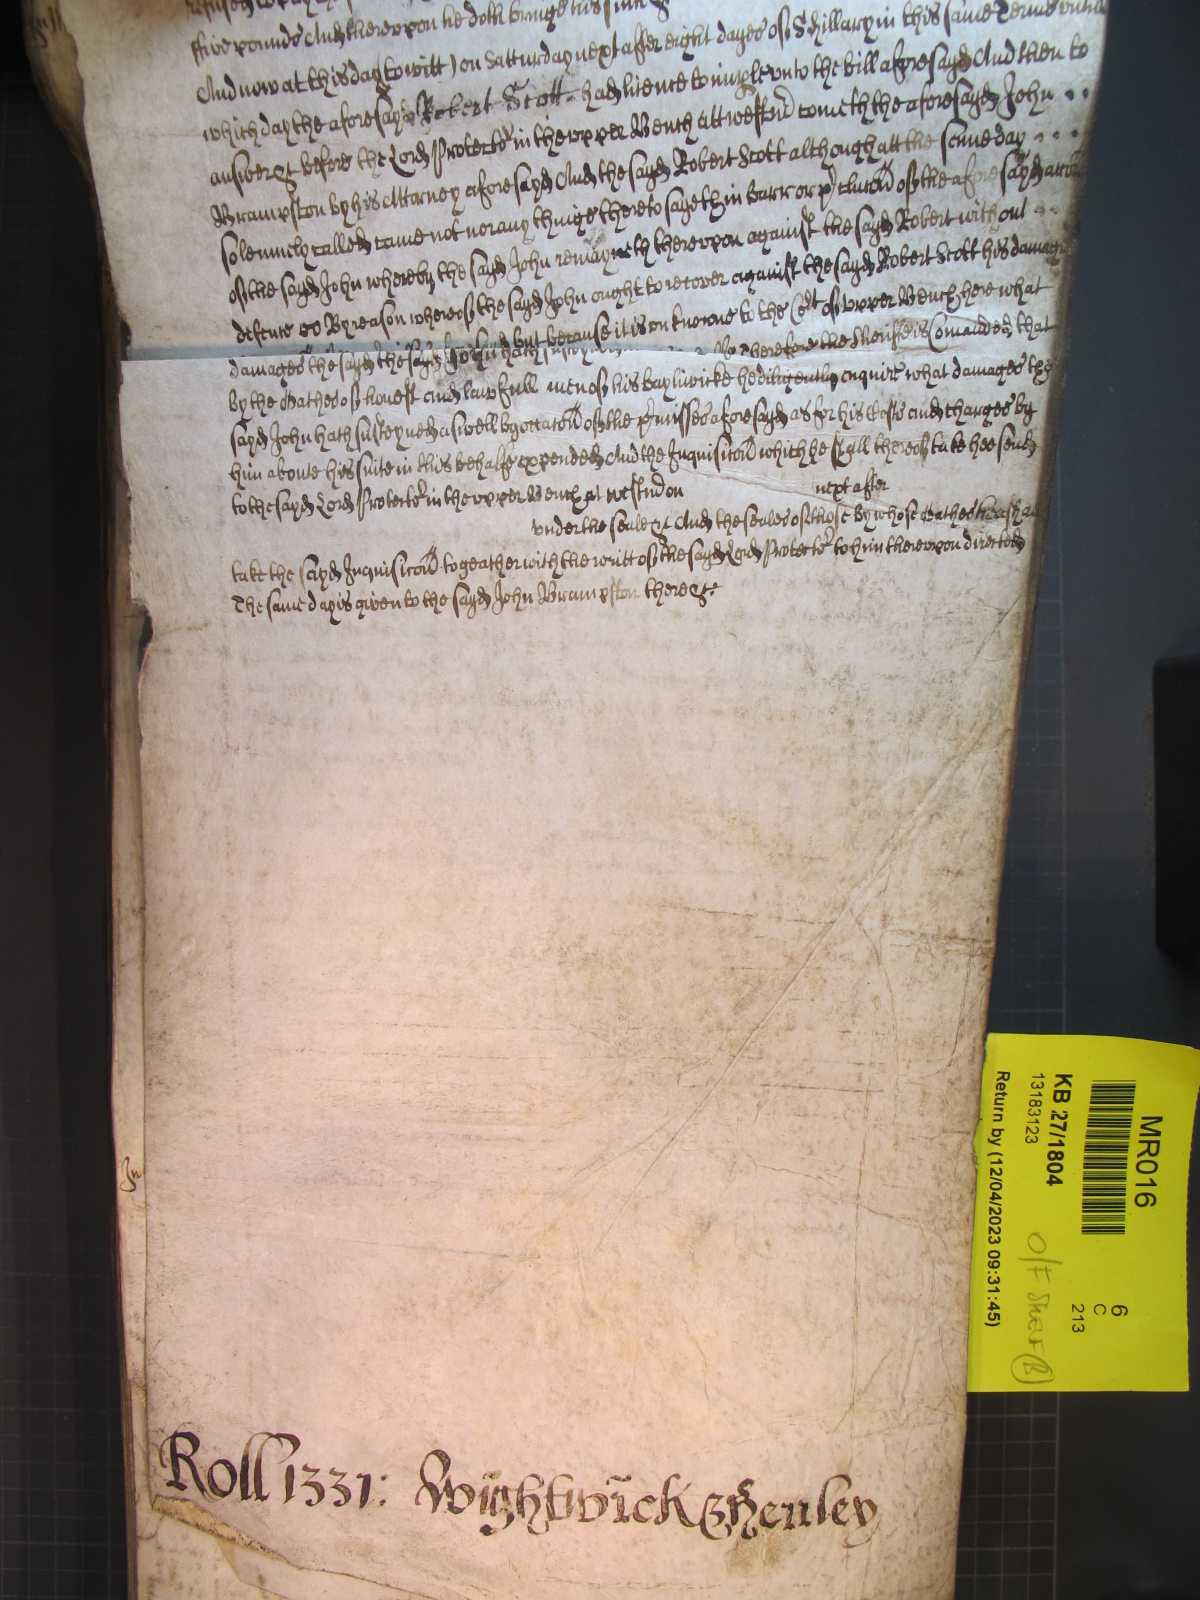 ffive pounds And thereupon he doth bringe his suite &
And now at this day to witt) on Satturday next after eight dayes of S Hillary in this same Terme untill
which day the aforesayd Robert Scott had licence to imple unto the bill aforesayd And then to
answer &c before the Lord Protector in the upper Bench att Westm) cometh the aforesayd John
Brampston by his Attorney aforesayd And the sayd Robert Scott although att the same day
solemnely called came not nor any thinge thereto sayeth in barr or of the aforesayd
of the sayd John whereby the sayd John remayneth thereupon against the sayd Robert without
defence &c By reason whereof the sayd John ought to recover against the sayd Robert Scott his damages
damages the sayd the sayd John hath but because it is unknowne to the Co't of upper Bench here what
Therefore the Sheriffe is Comanded that
by the Oathes of honest and lawfull men of his bayliwicke he diligently enquire what damages the
sayd John hath susteyned aswell by occacon of the p'misses aforesayd as for his Costs and charges by
him aboute his suite in this behalfe expended And the Inquisicon which he shall thereof take hee send
to the sayd Lord Protector in the upper Bench at Westm on next after
under the seale &c And the seales of those by whose Oathes
take the sayd Inquisicon togeather with the writt of the sayd Lord Protector to him thereupon directed
The same day is given to the sayd John Brampston there &c
In
Roll 1331: Wightwick & Henley
MR016
KB 27/1804
13183123
Return by (12/04/2023 09:31:45)
6
C
213